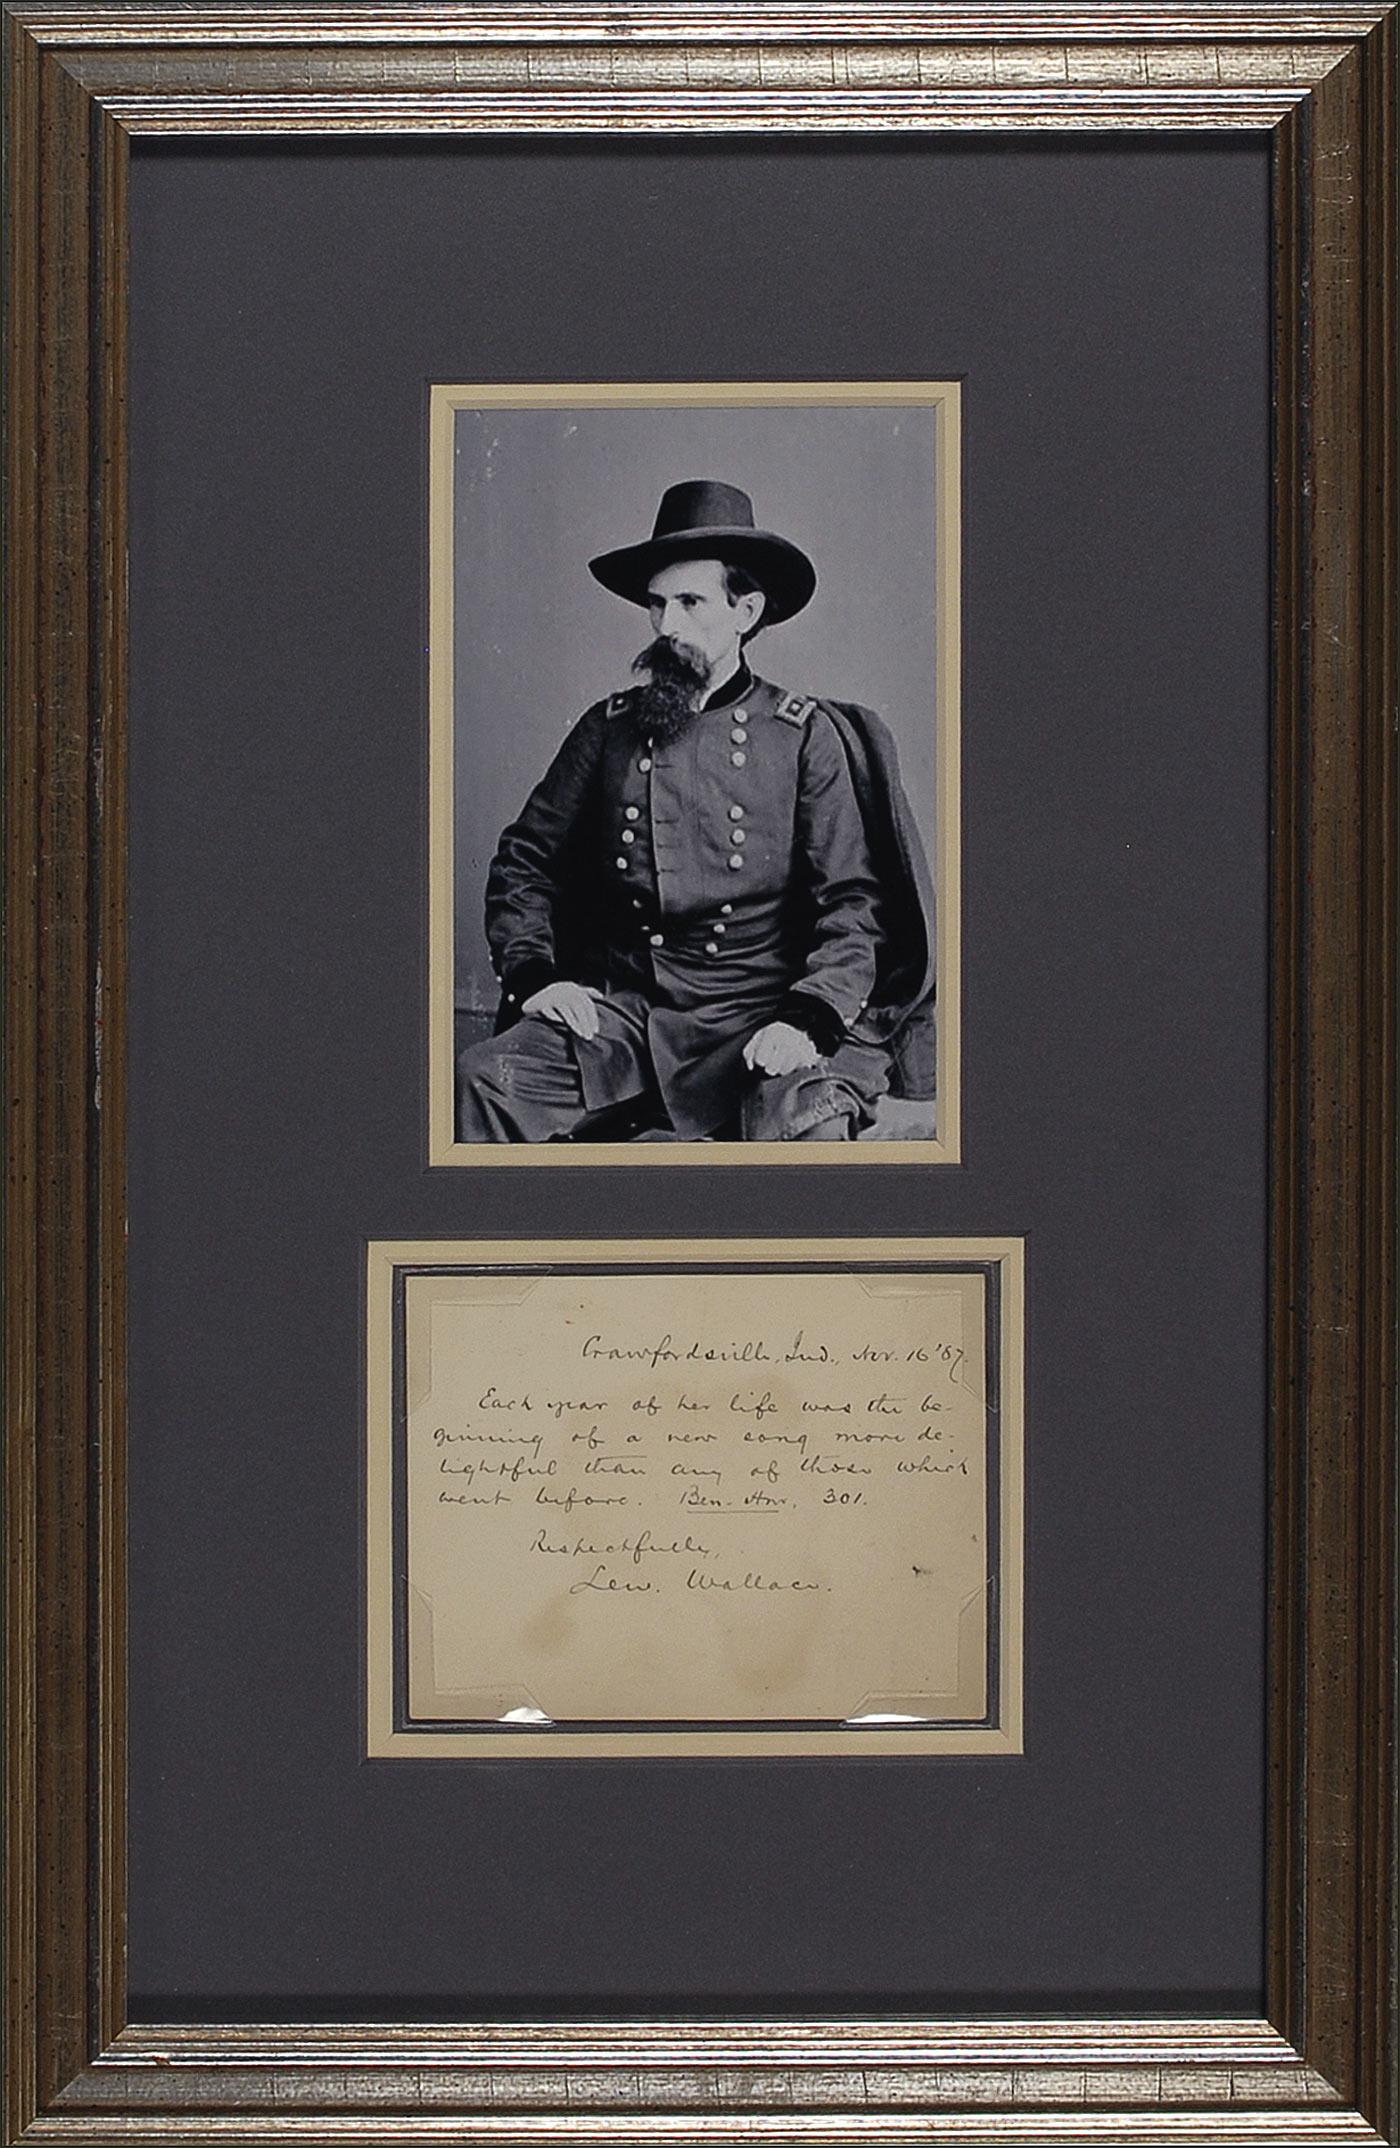 Crawfordsville, Ind., Nov. 16 '87.
Each year of her life was the be-
ginning of a new song more de-
lightful than any of those which
went before. Ben-Hur, 301.
Respectfully,
Lew. Wallace.